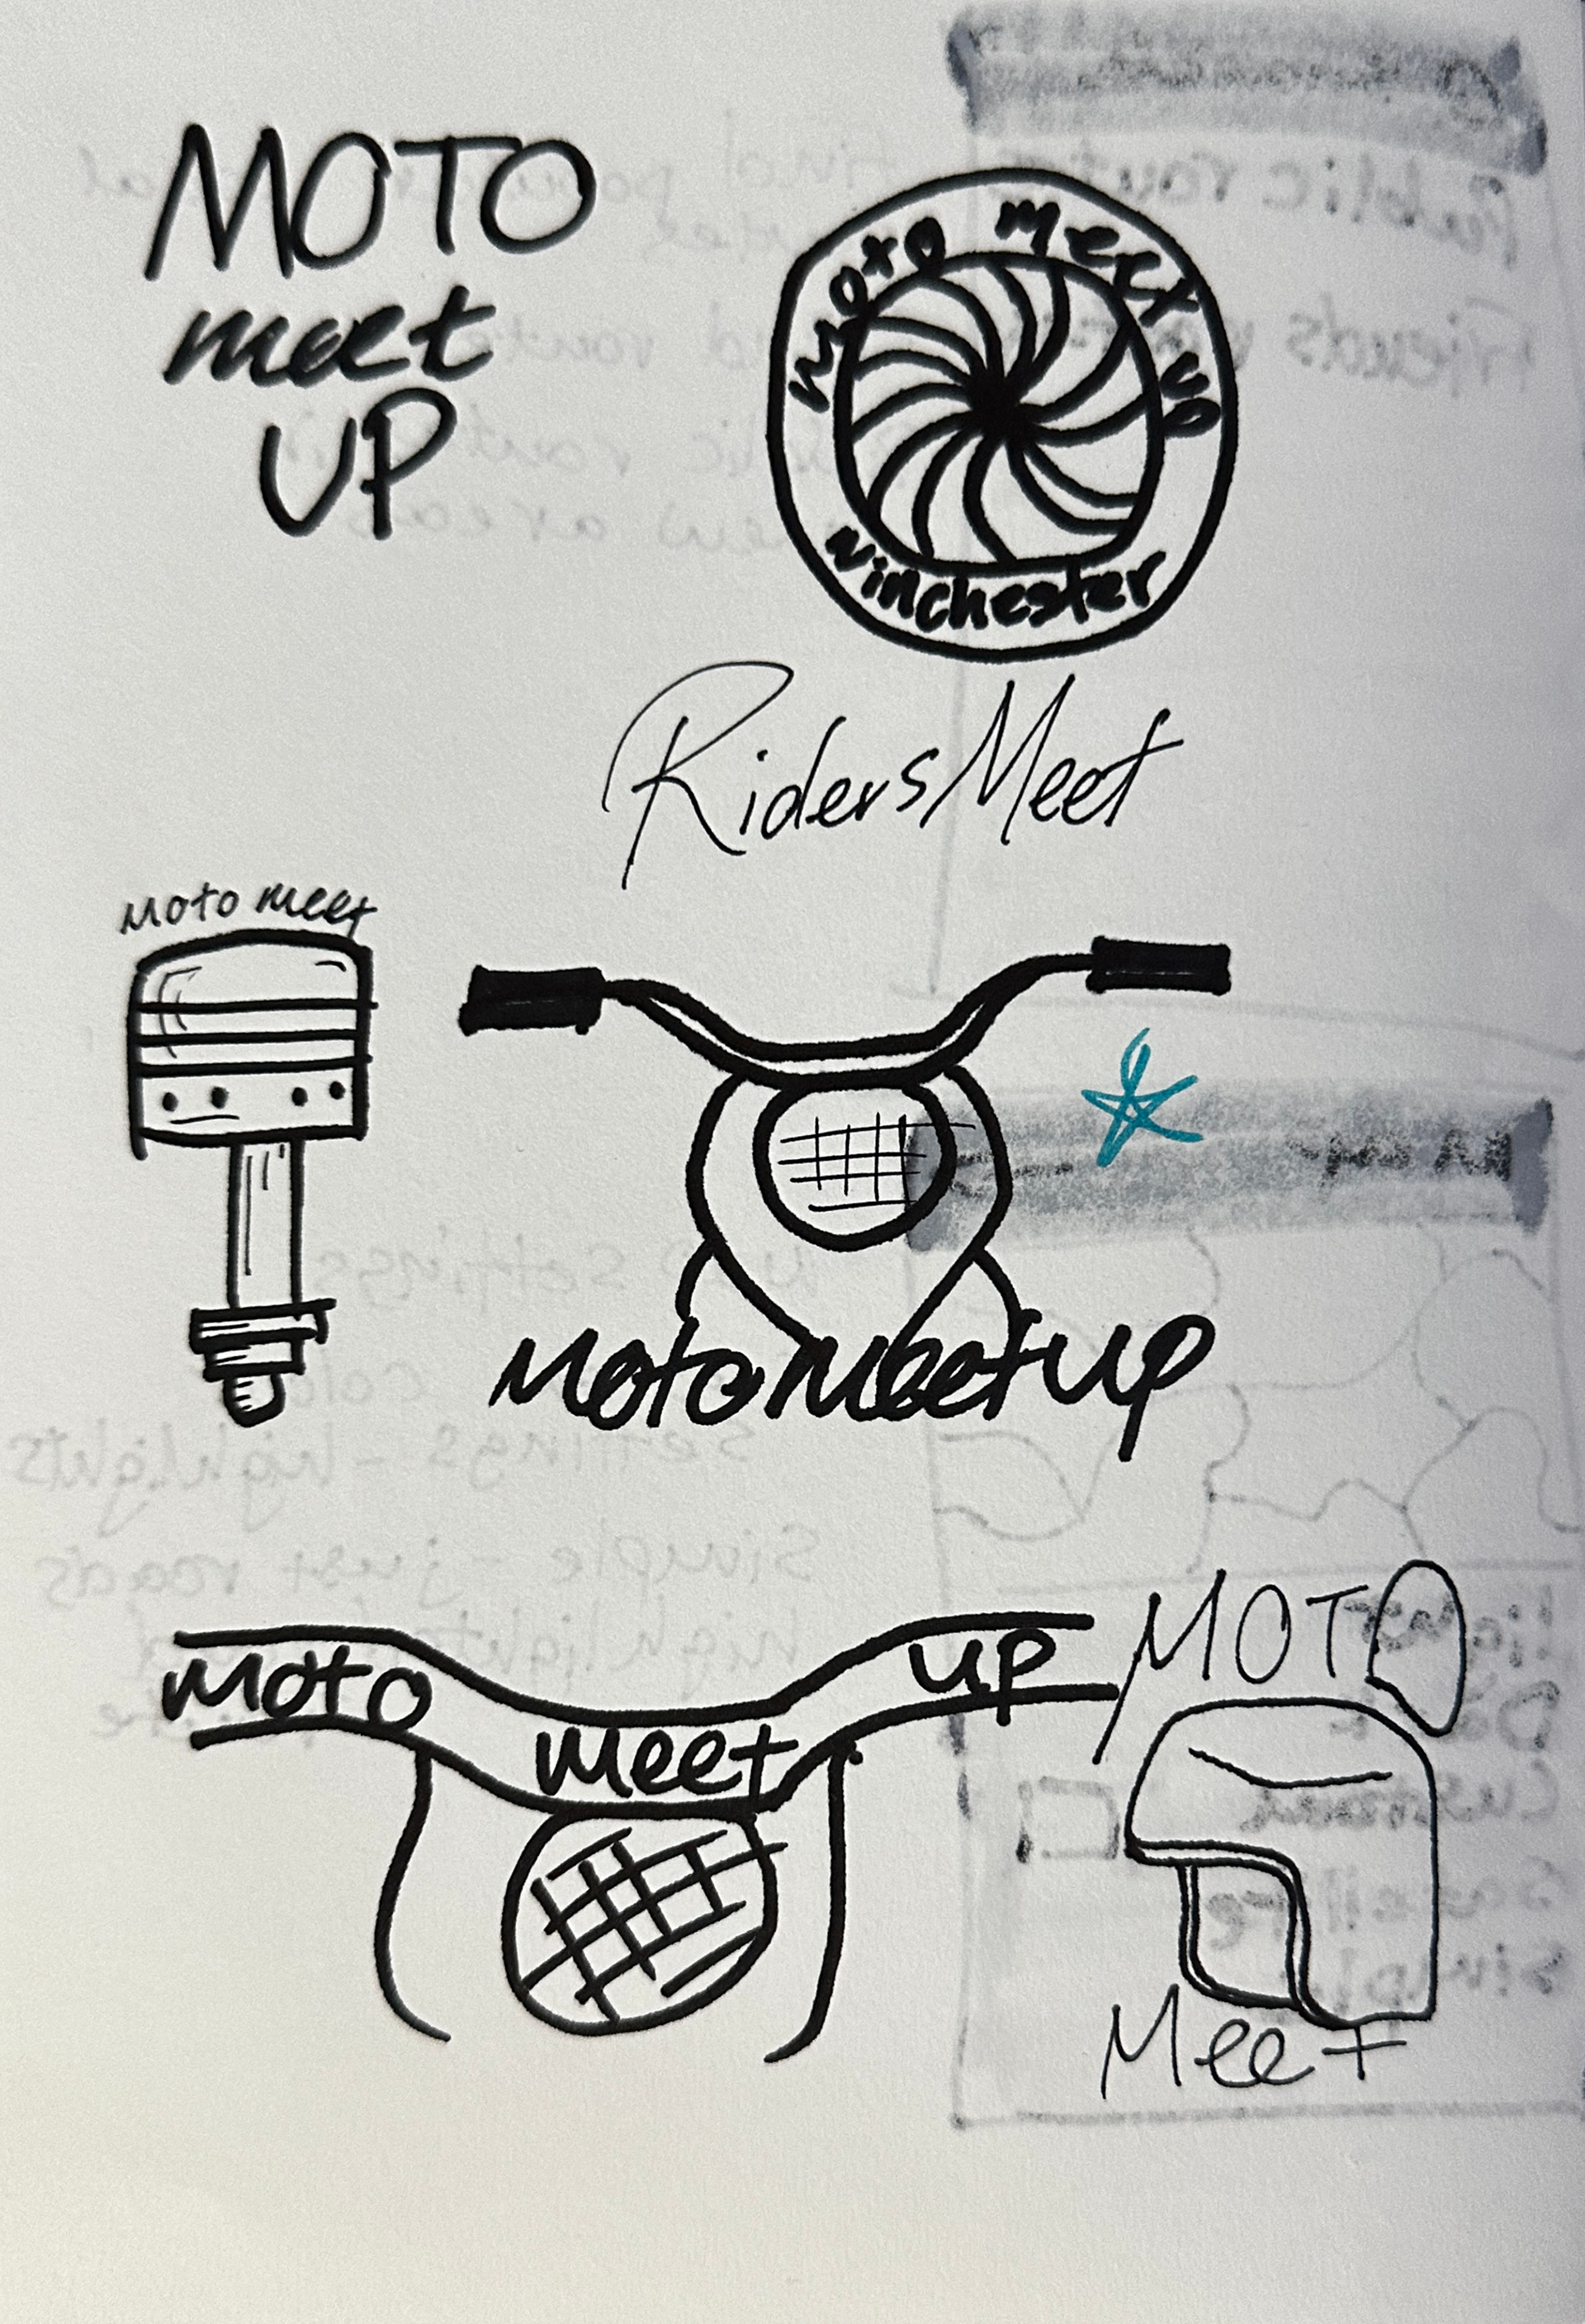 MOTO
meet
UP
Moto Meet up
Winchester
RidersMeet
Moto meet
MotoMeetup
Moto
Meet
up
MOTO
Meet